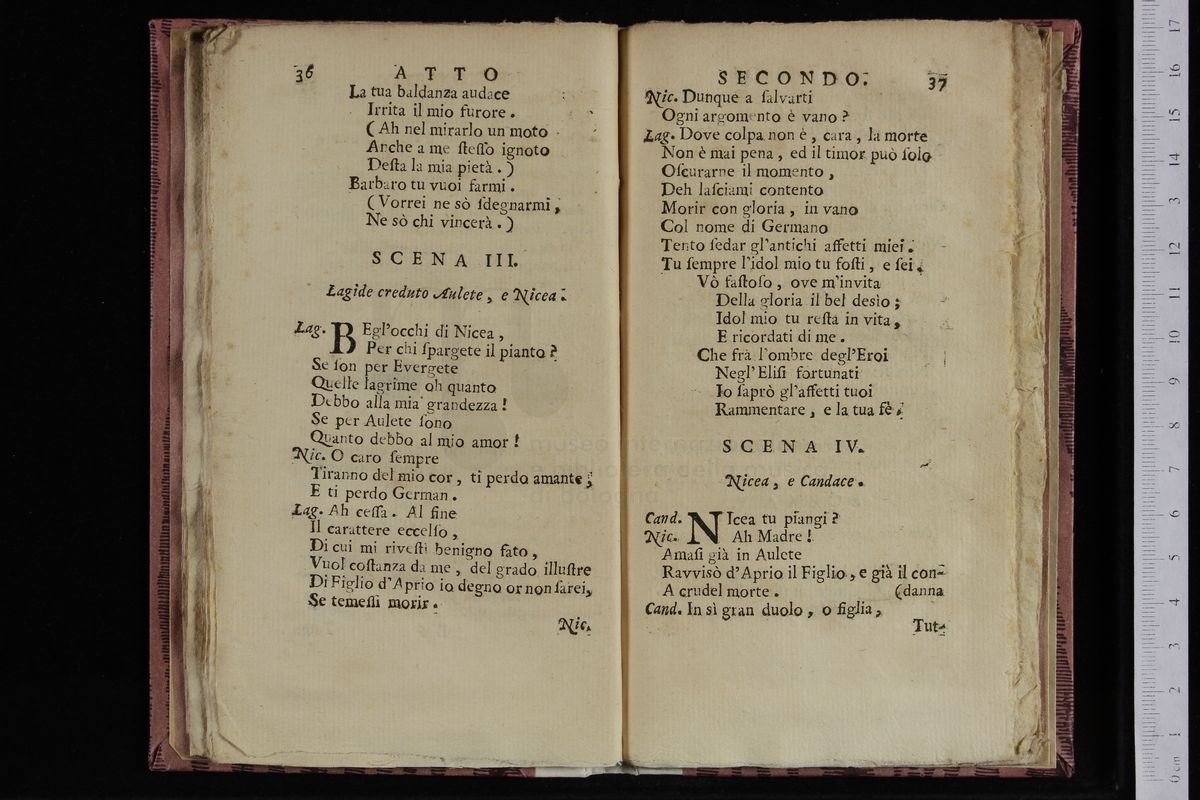 36 ATTO
La tua baldanza audace
Irrita il mio furore .
( Ah nel mirarlo un moto
Anche a me ſteſſo ignoto
Deſta la mia pietà . )
Barbaro tu vuoi farmi .
( Vorrei ne sò ſdegnarmi ,
Ne sò chi vincerà . )
SCENA III.
Lagide creduto Aulete , e Nicea .
Lag. BEgl'occhi di Nicea ,
Per chi ſpargete il pianto ?
Se ſon per Evergete
Quelle lagrime oh quanto
Debbo alla mia grandezza !
Se per Aulete ſono
Quanto debbo al mio amor !
Nic. O caro ſempre
Tiranno del mio cor , ti perdo amante ;
E ti perdo German .
Lag. Ah ceſſa . Al fine
Il carattere eccelſo ,
Di cui mi riveſtì benigno fato ,
Vuol coſtanza da me , del grado illuſtre
Di Figlio d'Aprio io degno or non ſarei,
Se temeſſi morir .
Nic.
SECONDO. 37
Nic. Dunque a ſalvarti
Ogni argomento è vano ?
Lag. Dove colpa non è , cara , la morte
Non è mai pena , ed il timor può ſolo
Oſcurarne il momento ,
Deh laſciami contento
Morir con gloria , in vano
Col nome di Germano
Tento ſedar gl'antichi affetti miei .
Tu ſempre l'idol mio tu foſti , e ſei .
Vò faſtoſo , ove m'invita
Della gloria il bel desìo ;
Idol mio tu reſta in vita ,
E ricordati di me .
Che frà l'ombre degl'Eroi
Negl' Eliſi fortunati
Io ſaprò gl'affetti tuoi
Rammentare , e la tua fè .
SCENA IV.
Nicea , e Candace .
Cand. NIcea tu piangi ?
Nic. Ah Madre !
Amaſi già in Aulete
Ravvisò d'Aprio il Figlio , e già il con-
A crudel morte . (danna
Cand. In sì gran duolo , o figlia ,
Tut-